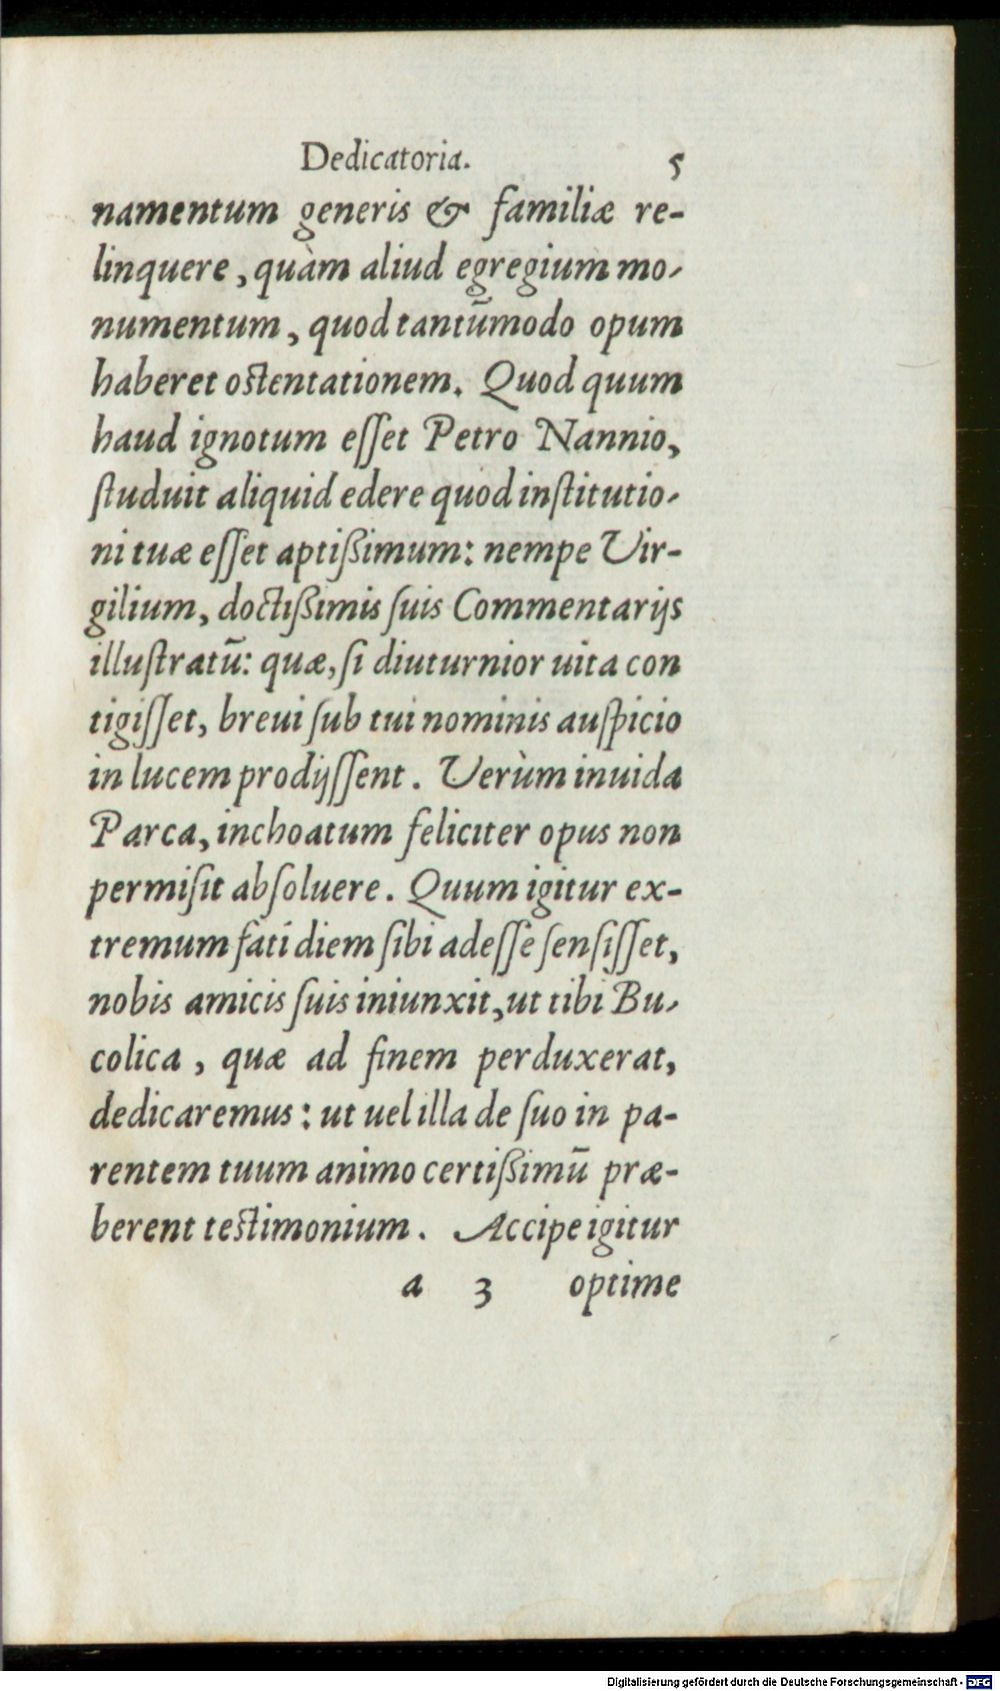 Dedicatoria. 5
namentum generis & familiæ re-
linquere, quàm aliud egregium mo-
numentum, quod tantūmodo opum
haberet ostentationem. Quod quum
haud ignotum eſſet Petro Nannio,
ſtuduit aliquid edere quod inſtitutio-
ni tuæ eſſet aptißimum: nempe Vir-
gilium, doctißimis ſuis Commentarijs
illuſtratū: quæ, ſi diuturnior uita con
tigiſſet, breui ſub tui nominis auſpicio
in lucem prodijſſent. Verùm inuida
Parca, inchoatum feliciter opus non
permiſit abſoluere. Quum igitur ex-
tremum fati diem ſibi adeſſe ſenſiſſet,
nobis amicis ſuis iniunxit, ut tibi Bu-
colica, quæ ad finem perduxerat,
dedicaremus: ut uel illa de ſuo in pa-
rentem tuum animo certißimū præ-
berent testimonium. Accipe igitur
a 3 optime
Digitalisierung gefördert durch die Deutsche Forschungsgemeinschaft - DFG